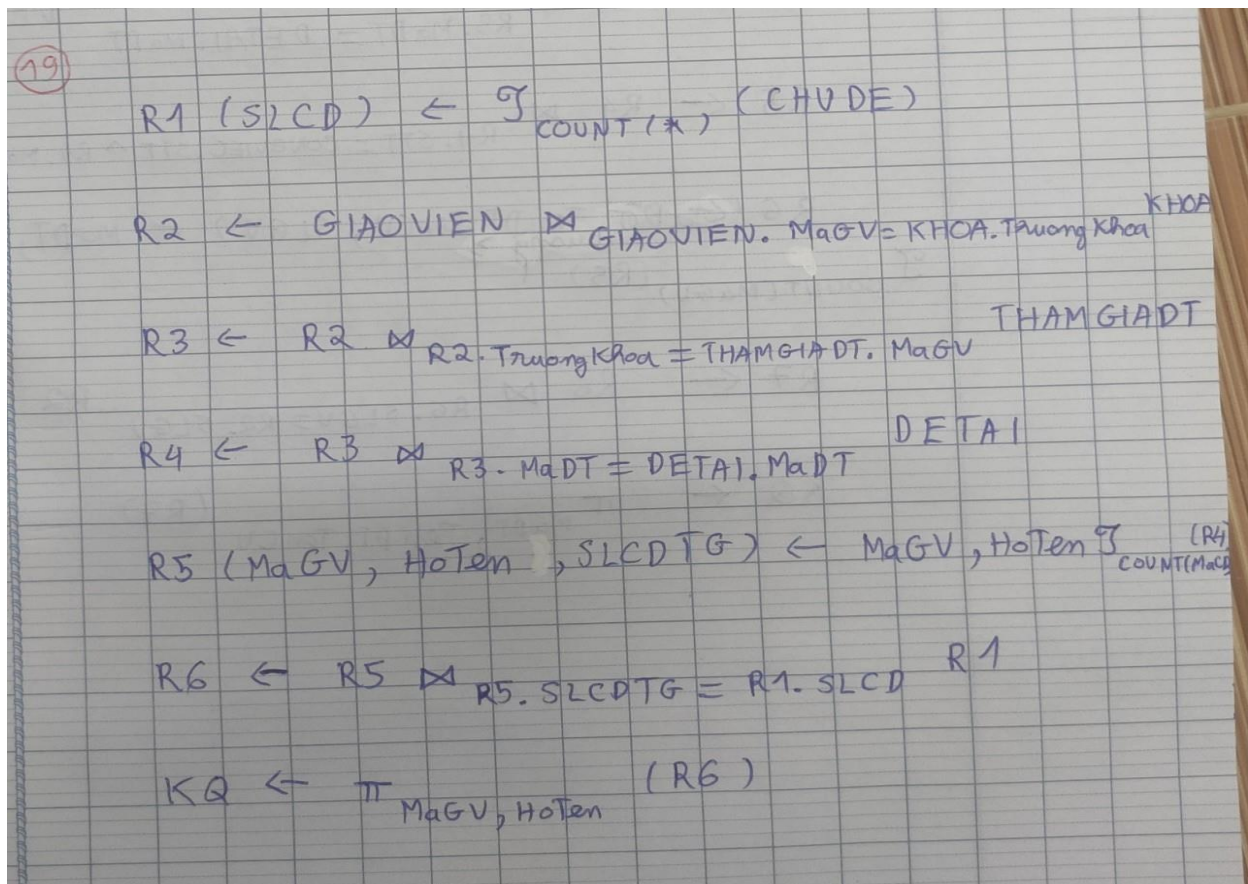 19
R1 (SLCD) ← ℱ COUNT(*) (CHUDE)
R2 ← GIAOVIEN ⋈ GIAOVIEN.MaGV = KHOA.TruongKhoa KHOA
R3 ← R2 ⋈ R2.TruongKhoa = THAMGIADT.MaGV THAMGIADT
R4 ← R3 ⋈ R3.MaDT = DETAI.MaDT DETAI
R5 (MaGV, HoTen, SLCDTG) ← MaGV, HoTen ℱ COUNT(MaCD (R4)
R6 ← R5 ⋈ R5.SLCDTG = R1.SLCD R1
KQ ← π MaGV, HoTen (R6)